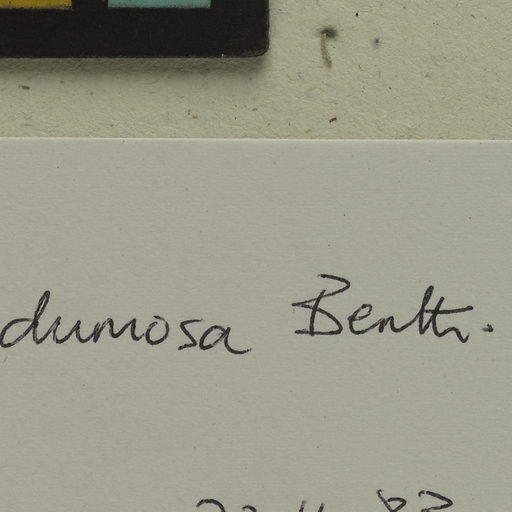 dumosa Benth.